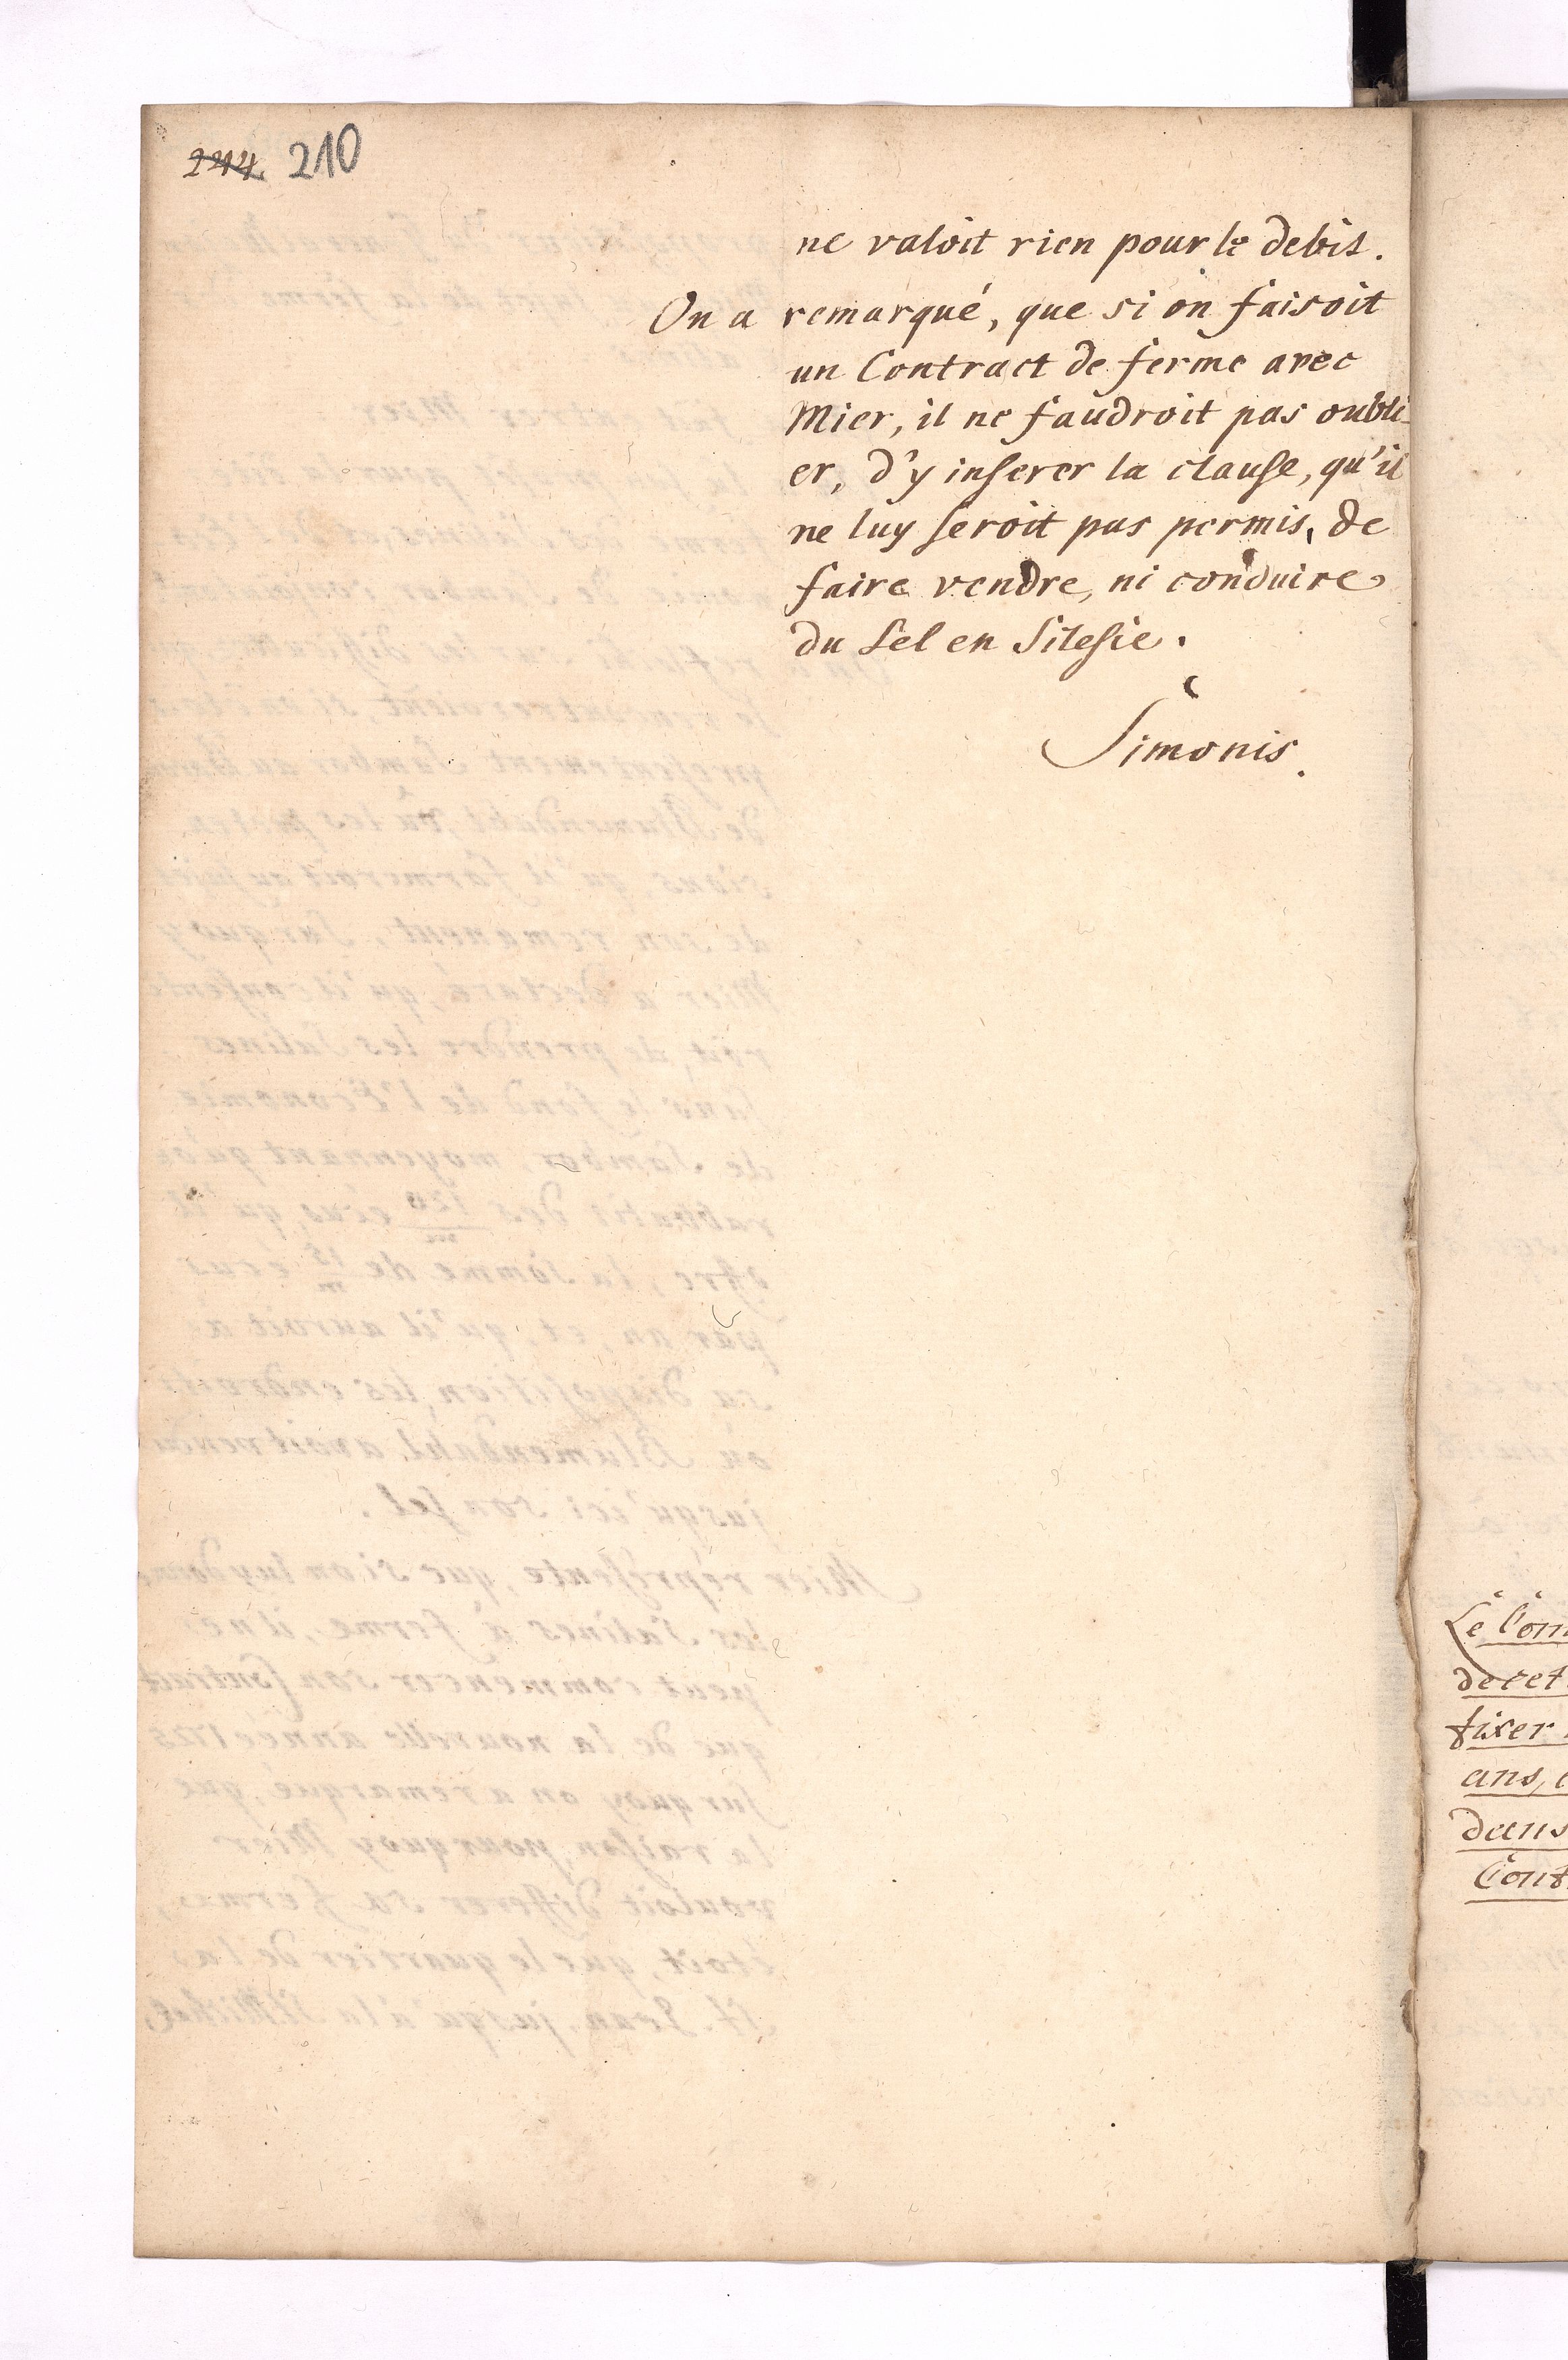 210
ne valoit rien pour le debit.
On a remarqué, que si on faisoit
un Contract de ferme avec
Mier, il ne faudroit pas oubli-
er, d'y inserer la clause, qu'il
ne luy seroit pas permis, de
faire vendre, ni conduire
du Sel en Silesie.
Simonis.
Le Com
de cet
fixer
ans,
dans
Cont